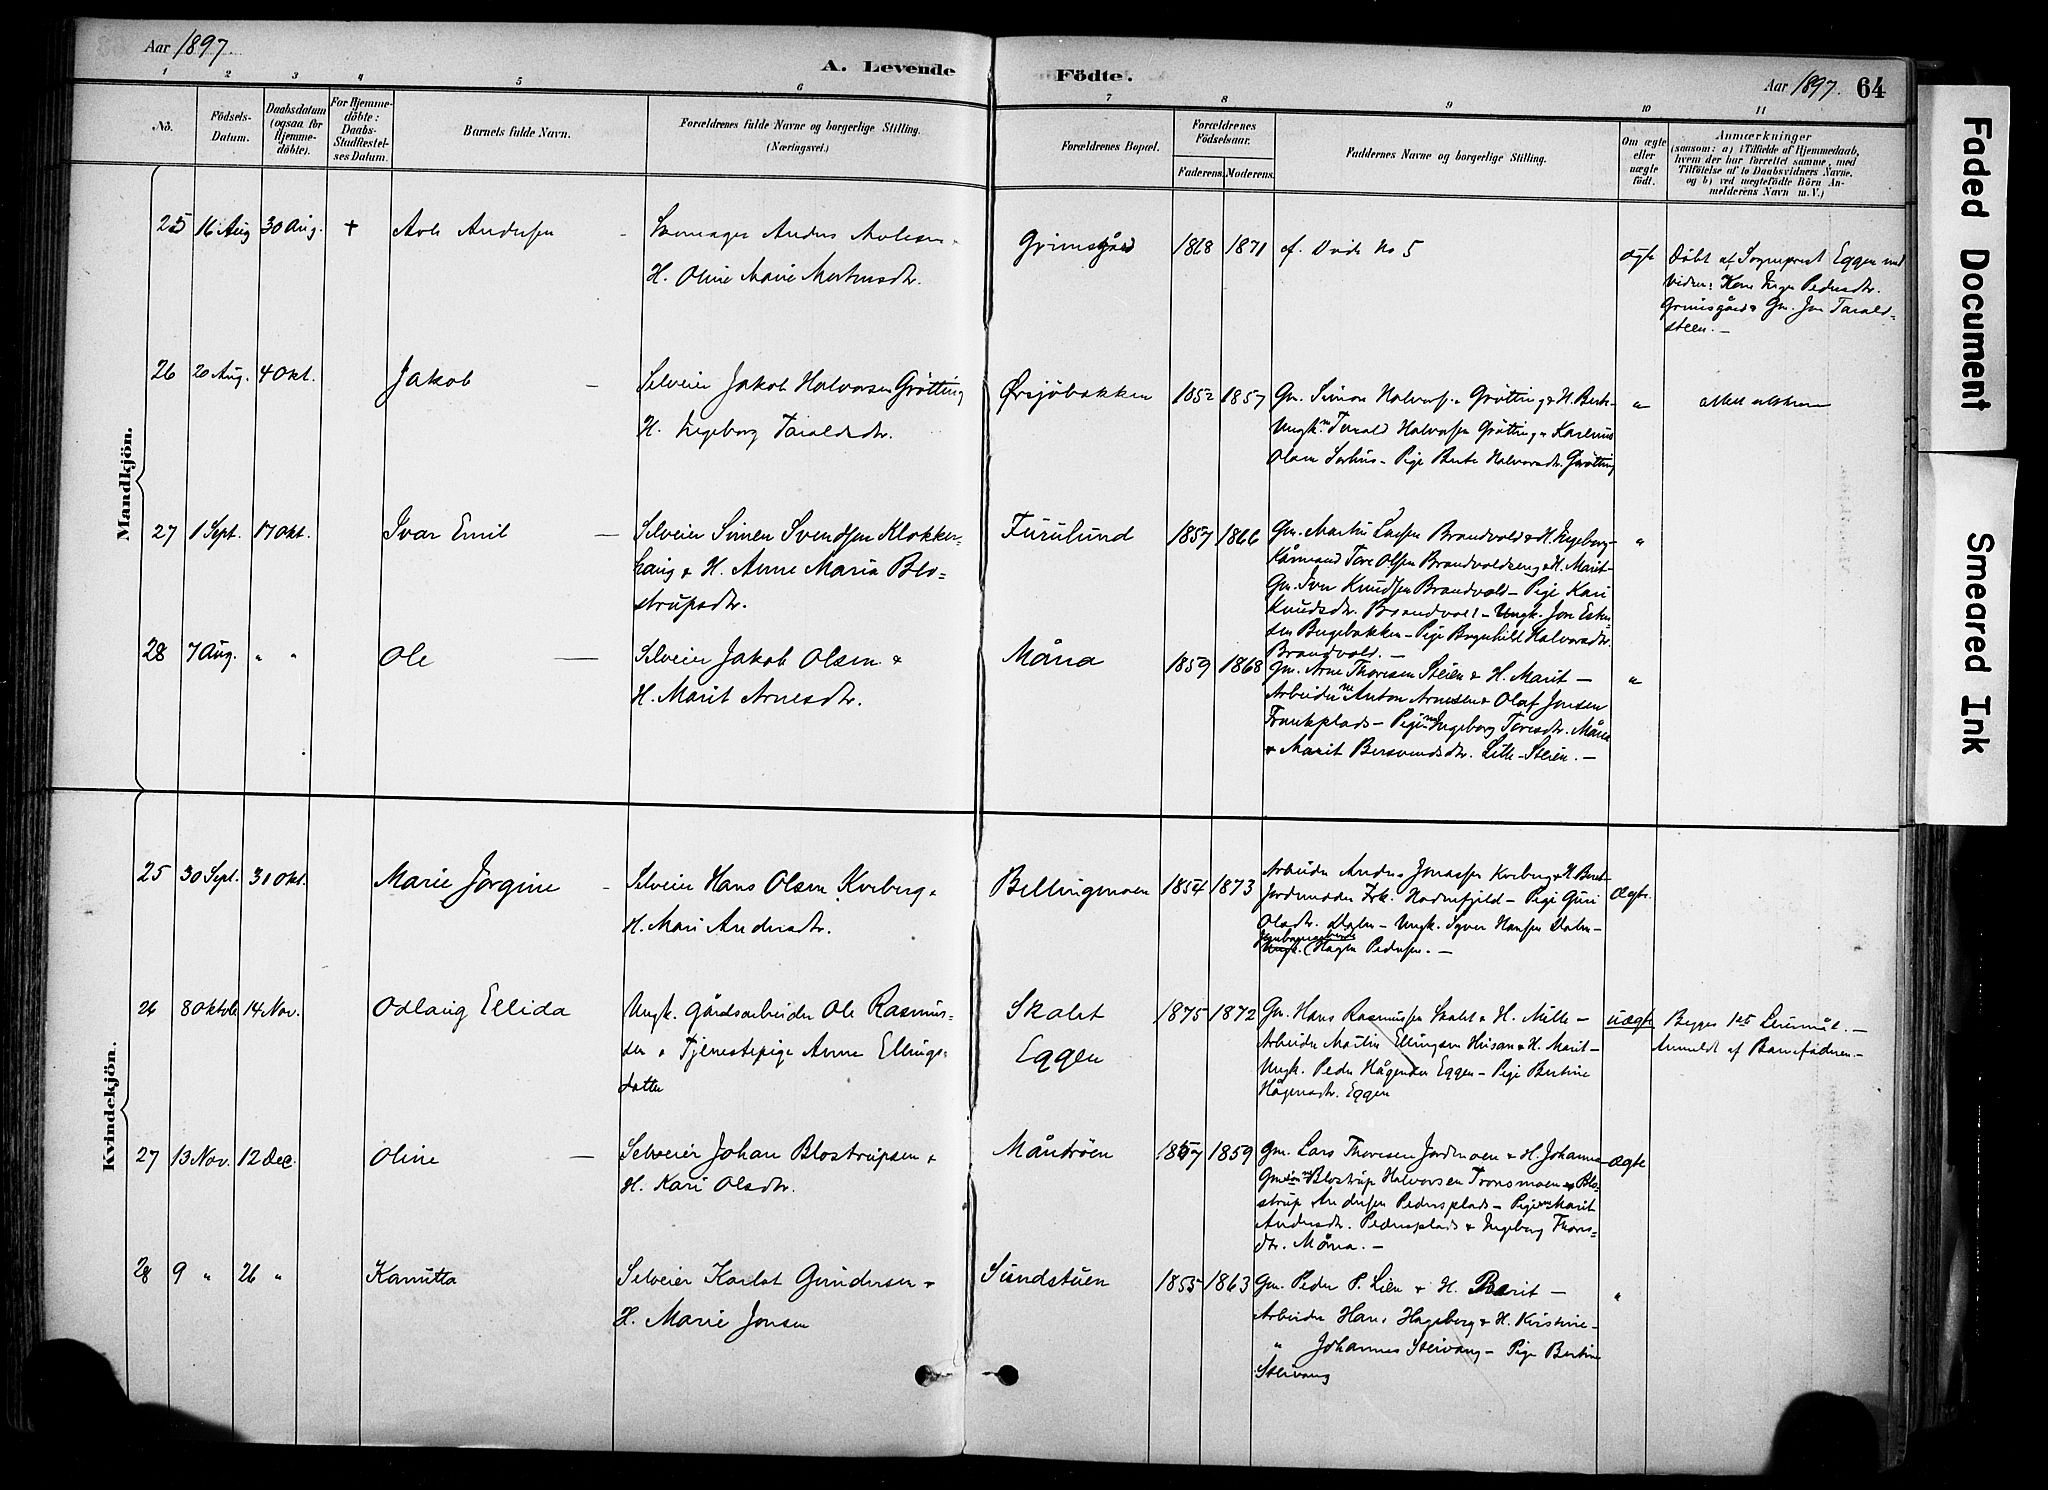 Aar 1897.
A. Levende Födte.
Aar 1897. 64
1 2 3 4 5 6 7 8 9 10 11
No.
Födsels-
Datum.
Daabsdatum
(ogsaa for
Hjemme-
döbte).
For Hjemme-
döbte:
Daabs-
Stadfæstel-
ses Datum.
Barnets fulde Navn.
Forældrenes fulde Navne og borgerlige Stilling.
(Næringsvei.)
Forældrenes Bopæl.
Forældrenes
Födselsaar.
Faderens. Moderens.
Faddernes Navne og borgerlige Stilling.
Om ægte
eller
uægte
födt.
Anmærkninger
(saasom: a) i Tilfælde af Hjemmedaab,
hvem der har forrettet samme, med
Tilföielse af to Daabsvidners Navne.
og b) ved uægtefödte Börn An-
melderens Navn m.V.)
Mandkjön.
25 16 Aug 30 Aug. +
Anders
H. Oline Marie Mortensdtr.
Grimsgård
1868 1871
cf. Døde No 5
ægte
Døbt af Sogneprest Eggen med
Vidner: Kone Inger Pedersdtr.
Grimsgård & Gm. Jon Tarald-
steen. -
26 20 Aug. 4 Okt.
Jakob -
Selveier Jakob Halvorsen Grötting
H. Ingeborg Taraldsdtr.
Ørsjöbakken
1852 1857
Gm. Simon Halvors. Grötting & H. Berit-
Ungk.m Tarald Halvorsen Grötting & Karlinus
Olsen - Pige Berte Halvorsdtr. Grötting
"
27 1 Sept. 17 Okt.
Ivar Emil -
Selveier Simen Svendsen Klokker-
haug & H. Anne Maria Blo-
strupsdtr.
Furulund
1857 1866
Gm. Martin Larsen Brandvold & H. Ingeborg-
Kårmand Tore Olsen Brandvoldseng & H. Marit-
Gm. Iver Knudsen Brandvold - Pige Kari
Knudsdtr. Brandvold - Ungk. Jon Esten-
sen Bugebakken - Pige Bergehild Halvorsdtr.
Brandvold. -
"
28 7 Aug. " "
Ole -
Selveier Jakob Olsen &
H. Marit Arnesdtr.
Måna
1859 1868
Gm. Arne Thoresen Steien & H. Marit -
Arbeider ne Anton Arnesen & Olaf Jonsen
Trankplads - Pigerne Ingeborg Toresdtr. Måna
& Marit Bersvendsdtr. Lille-Steien. -
"
Kvindekjön.
25 30 Sept. 31 Okt.
Marie Jörgine -
Selveier Hans Olsen Kveberg &
H. Mari Andersdtr.
Bellingmoen
1854 1873
Arbeider Anders Jonassen Kveberg & H. Berit-
Jordmoder Frk. Hodnefjeld - Pige Guri
Olsdtr. Dalen - Ungk. Syver Hansen Dalen -
Ungk. Hagen Pedersen. -
Ægte.
26 8 Oktob 14 Nov.
Odlaug Ellida
Ungk. Gårdsarbeider Ole Rasmus-
sen & Tjenestepige Anne Ellings-
datter
Skalet
Eggen
1875 1872
Gm. Hans Rasmussen Skalet & H. Mille -
Arbeider Martin Ellingsen Husan & H. Marit -
Ungk. Peder Hågensen Eggen - Pige Bertine
Hågensdtr. Eggen
uægte
Begges 1ste Leiermål. -
Anmeldt af Barnefaderen -
27 13 Nov. 12 Dec.
Oline -
Selveier Johan Blostrupsen &
H. Kari Olsdtr.
Måntröen
1857 1859
Gm. Lars Thoresen Jordmoen & H. Johanna -
Blostrup Halvorsen Tronsmoen & Blo-
strup Andersen Pedersplads - Pigerne Marit
Andersdtr. Pedersplads & Ingeborg Thores-
dtr. Måna. -
ægte
28 9 " 26 "
Kanutta
Selveier Karlot Gundersen &
H. Marie Jonsen
Sundstuen
1855 1863
Gm. Peder P. Lien & H. Berit -
Arbeider Hans Hageberg & H. Kristine -
" Johannes Steivang - Pige Bertine
Steivang
"
Faded Document
Smeared Ink